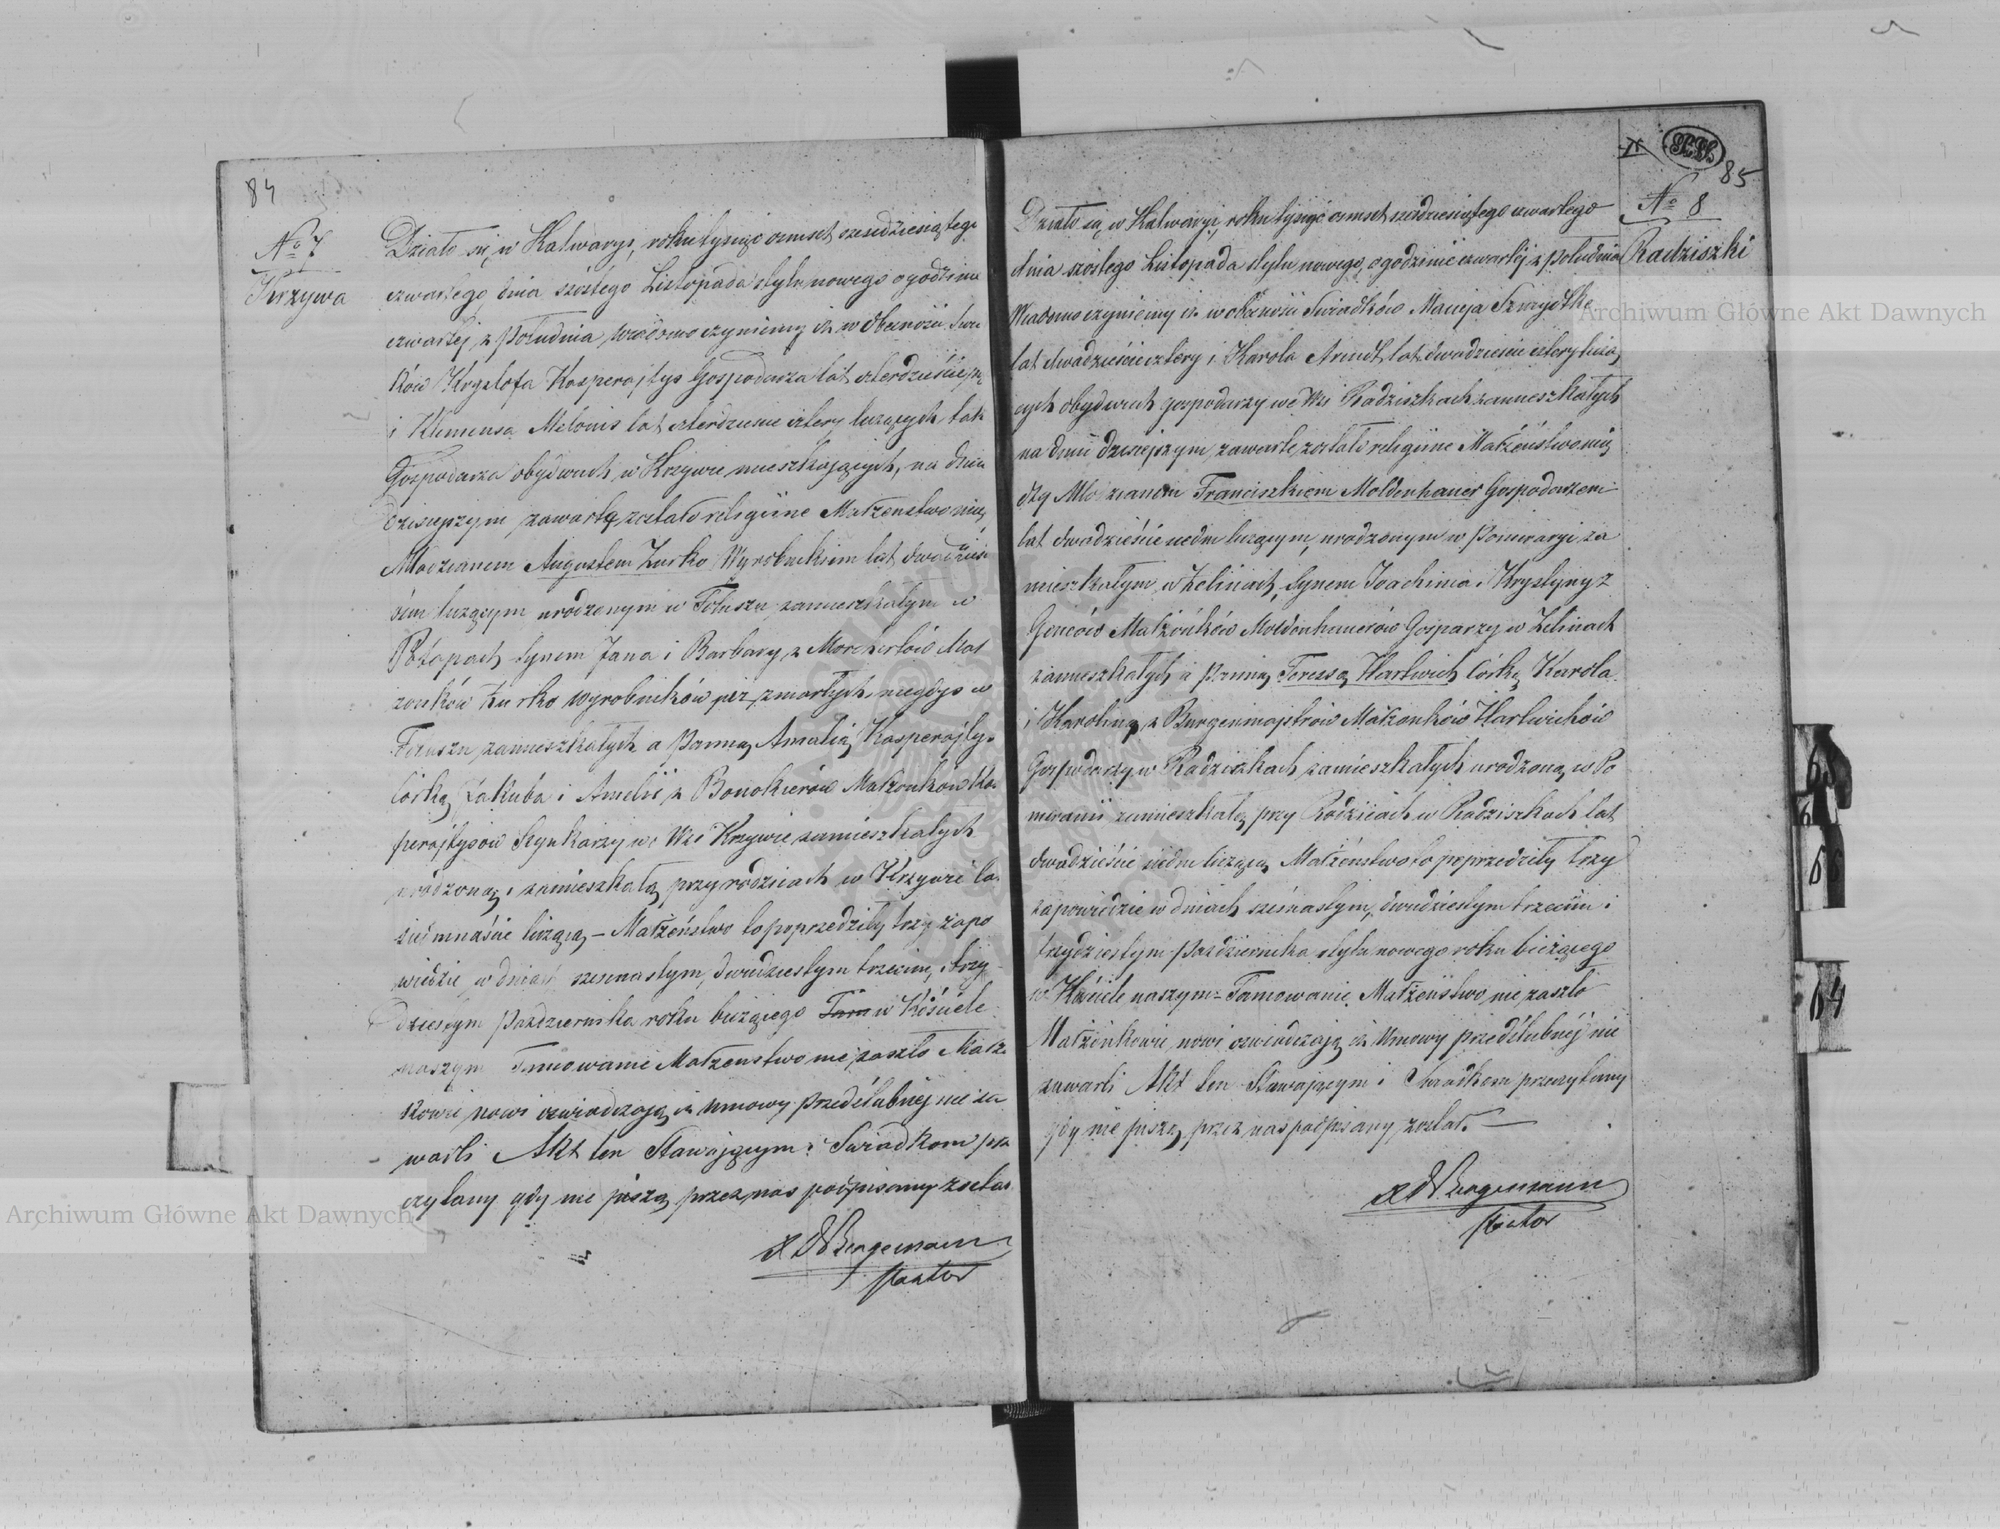 84
No 7
Krzywa
Działo się w Kalwaryi, roku tysiąc osmset szesdziesiątego
czwartego dnia szóstego Listopada stylu nowego o godzinie
czwartej z Południa, wiadomo czyniemy iż w obecności Świad
ków Krysztofa Kasperajtys Gospodarza lat czterdzieście
i Klemensa Melonis lat czterdzieście cztery liczących tak
Gospodarza obydwuch w Krzywie mieszkających, na dniu
dzisiejszym zawarte zostało religijne Małżenstwo między
Młodzianem Augustem Zurko Wyrobnikiem lat dwadzieścia
liczącym urodzonym w zamieszkałym w
Potapach synem Jana i Barbary z Mał
żonków Zurko wyrobników już zmarłych niegdyś w
zamieszkałych a Panną Amalią Kasperajtys
córką Jakuba i Amelii z Małżonków Kas
perajtysów Szynkarzy we Wsi Krzywie zamieszkałych
urodzoną i zamieszkałą przy rodzicach w Krzywie lat
siedmnaście liczącą – Małżeństwo to poprzedziły trzy zapo
wiedzie w dniach szesnastym, dwudziestym trzecim, i trzy
dziestym Października roku bieżącego w Kościele
naszym Tamowanie Małżenstwo nie zaszło Małż
kowie nowi oświadczają iż umowy przedślubnéj nie za
warli Akt ten Stawającym i Świadkom prze
czytany gdy nie piszą przez nas podpisany został
Bergemann
Pastor
85
No 8
Radziszki
Działo się w Kalwaryi, roku tysiąc osmset szesdziesiątego czwartego
dnia szóstego Listopada stylu nowego, o godzinie czwartéj z południa
Wiadomo czyniemy iż w obecności Świadków Macieja
lat dwadzieście cztery i Karola Arndt lat dwadzieście cztery liczą
cych obydwuch gospodarzy we Wsi Radziszkach zamieszkałych
na dniu dzisiejszym, zawarte zostało religijne Małżeństwo mię
dzy Młodzianem Franciszkiem Moldenhauer Gospodarzem
lat dwadzieście siedm liczącym, urodzonym w Pomeranyi za
mieszkałym w Zelinach, synem Joachima i Krystyny z
Małżonków Moldenhauerów Gosparzy w Zelinach
zamieszkałych a Panną Teressą Hartwich Córką Karola
i Karoliną z Burgenmajstrów Małżonków Hartwichów
Gospodarzy w Radziszkach zamieszkałych urodzoną w Po
meranii zamieszkałą przy Rodzicach w Radziszkach lat
dwadzieście siedm liczącą Małżeństwo to poprzedziły trzy
zapowiedzie w dniach szesnastym, dwudziestym trzecim i
trzydziestym Października stylu nowego roku bieżącego
w Kościele naszym = Tamowanie Małżeństwo nie zaszło
Małżonkowie nowi oświadczają iż Umowy przedślubnéj nie
zawarli Akt ten Stawającym i Świadkom przeczytany
gdy nie piszą przez nas podpisany został. —
Bergemann
Pastor
66
64
Archiwum Główne Akt Dawnych
Archiwum Główne Akt Dawnych